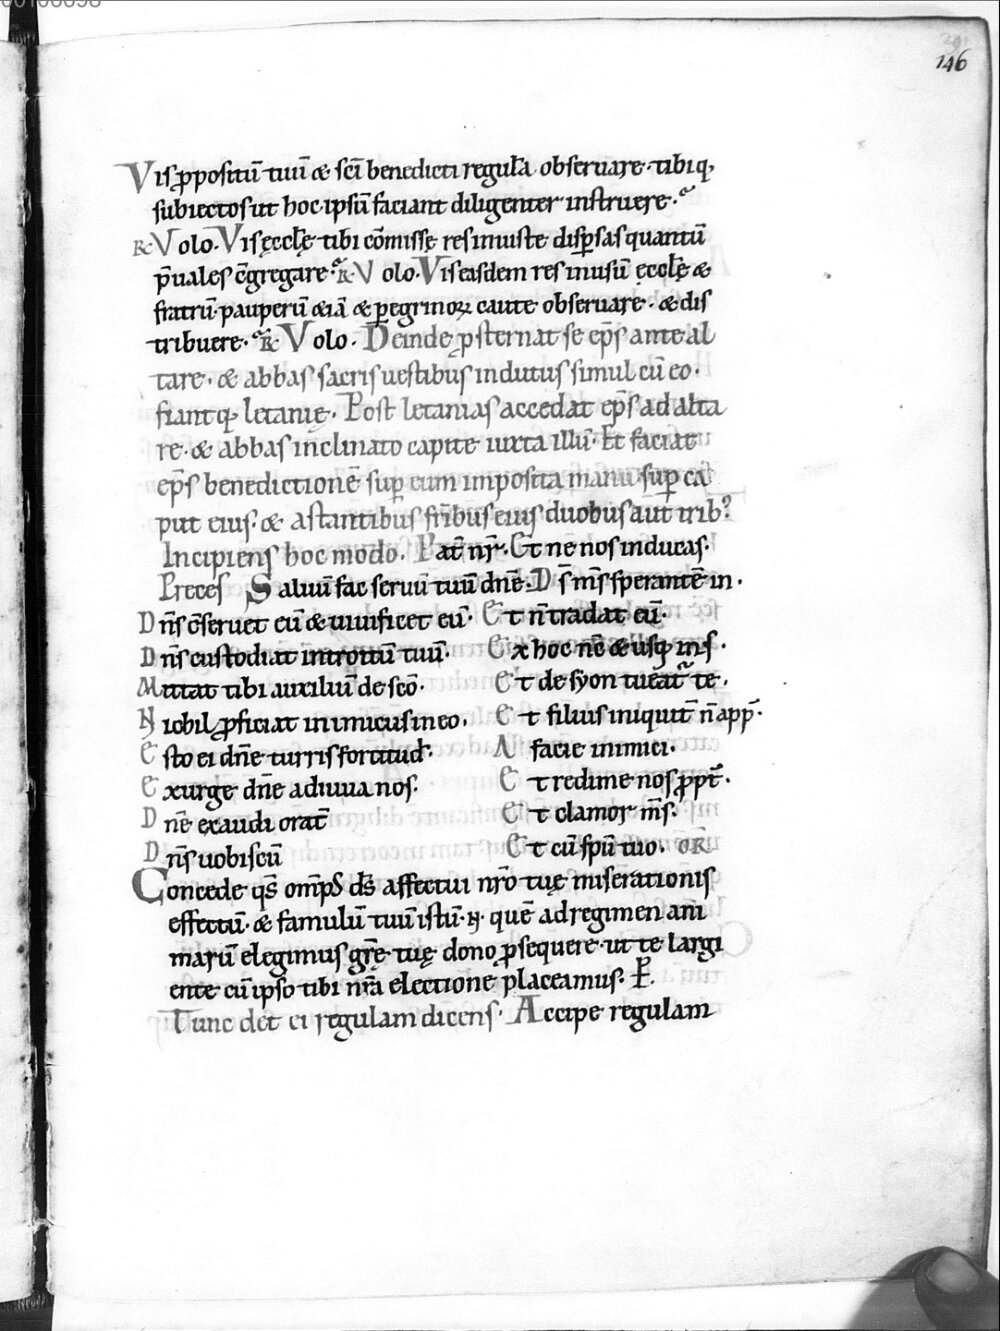 146
Vis ꝓpositū tuū & sc̄i benedicti regulā obseruare. tibiq;
subiectos ut hoc ipsū faciant diligenter instruere.
R. Volo. Vis ęcclę tibi cōmissę res iniuste disp̱sas quantū
p̄uales c̄gregare. R. Volo. Vis easdem res in usū ęcclę &
fratrū. pauperū &iā & peregrinoꝝ caute obseruare. & dis
tribuere. R. Volo. Deinde ꝓsternat se ep̄s ante al
tare. & abbas sacris uestibus indutus simul cū eo.
fiantq; letanię. Post letanias accedat ep̄s ad alta
re. & abbas inclinato capite iuxta illū. Et faciat
ep̄s benedictionē sup̱ eum imposita manu sup̱ ca
put eius. & astantibus fr̄ibus eius duobus aut trib;
Incipiens hoc modo. Pat̄ nr̄. Et ne nos inducas.
Preces Saluū fac seruū tuū dn̄e. Ds̄ ms̄ sperantē in.
Dn̄s c̄seruet eū & uiuificet eū. Et n̄ tradat eū.
Dn̄s custodiat introitū tuū. Ex hoc nc̄ & usq; ins.
Mittat tibi auxiliū de sc̄o. Et de syon tueat̄ te.
Nichil ꝓficiat inimicus in eo. Et filius iniquit̄ n̄ app̄.
Esto ei dn̄e turris fortitud. A facie inimici.
Exurge dn̄e adiuua nos. Et redime nos ꝓpt̄.
Dn̄e exaudi orat̄ Et clamor ms̄.
Dn̄s uobiscū Et cū sp̄u tuo. OR̄
Concede qs̄ omp̄s ds̄ affectui nr̄o tuę miserationis
effectū. & famulū tuū istū. N. quē ad regimen ani
marū elegimus gr̄ę tuę dono ꝓsequere. ut te largi
ente cū ipso tibi nr̄a electione placeamus. P.
Tunc det ei regulam dicens. Accipe regulam